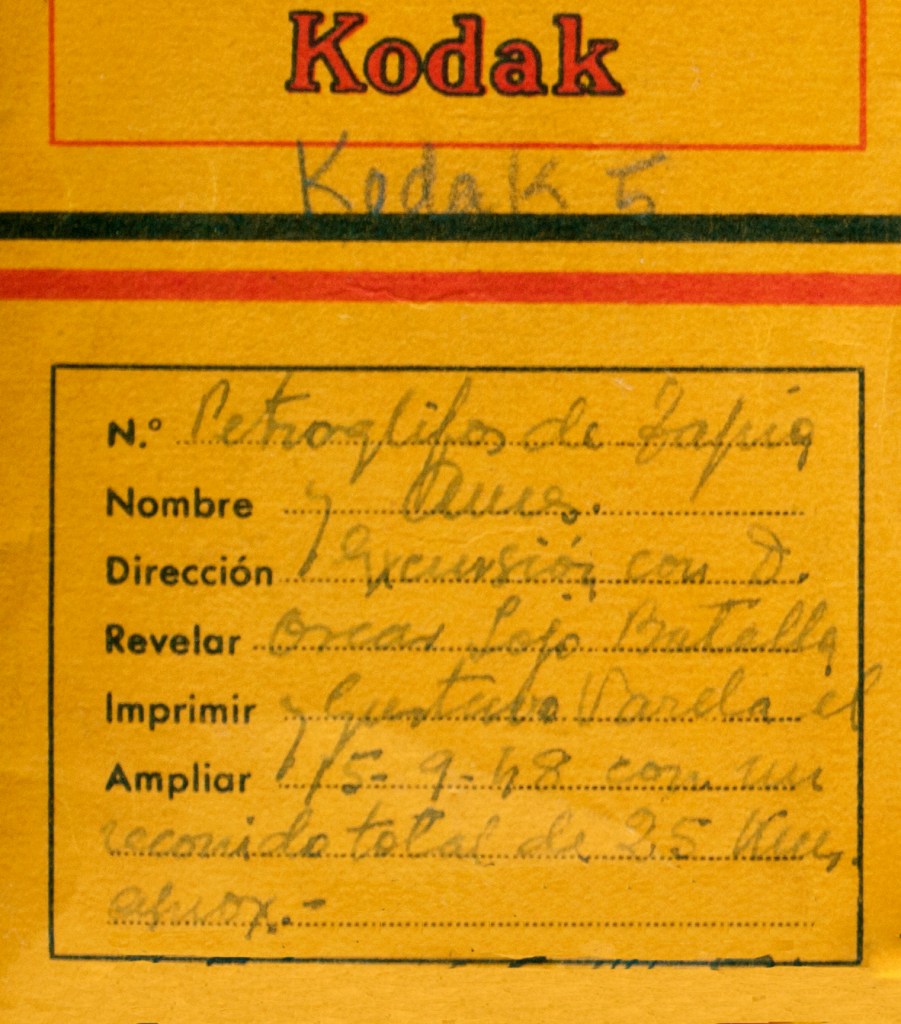 Kodak
Kodak 5
N.º Petroglifos de Tapia
Nombre y Ames.
Dirección Excursión con D.
Revelar Oscar Lojo Batalla
Imprimir y Gustavo Varela el
Ampliar 15-9-48 con un
recorrido total de 25 Km.
aprox.-